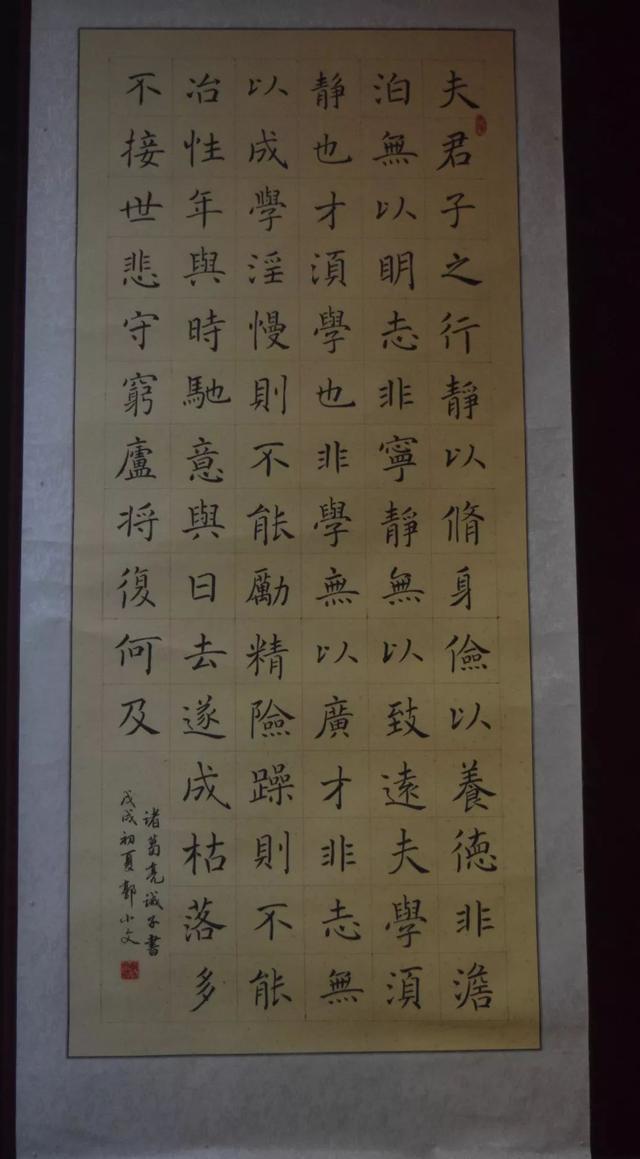 夫君子之行静以脩身儉以養德非澹
泊無以明志非寧静無以致遠夫學須
静也才須學也非學無以廣才非志無
以成學淫慢則不能勵精險躁則不能
冶性年與時馳意與日去遂成枯落多
不接世悲守窮廬將復何及
诸葛亮诫子書
戊戌初夏郭小文